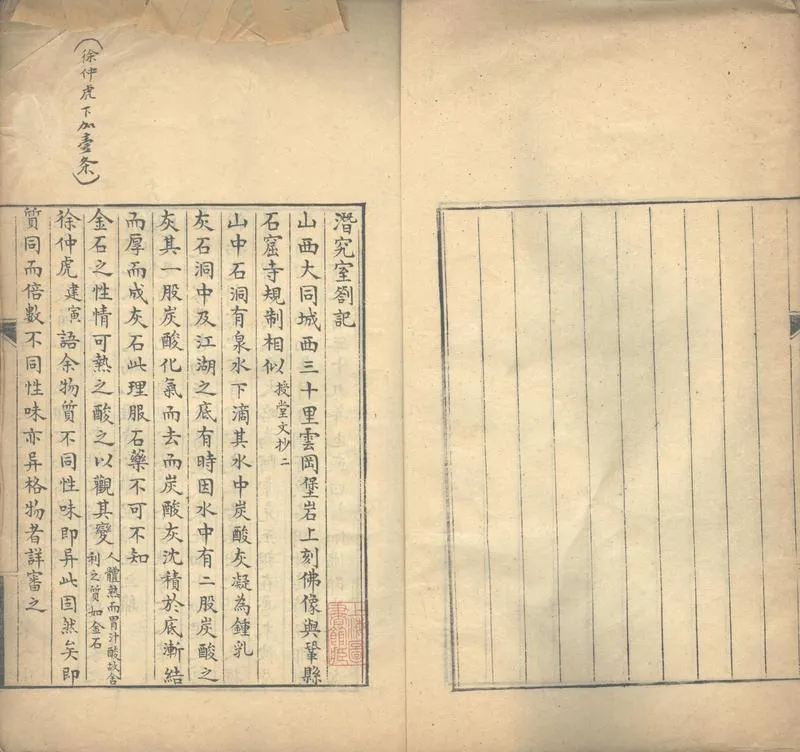 (徐仲虎下加壹条)
潛究室劄記
山西大同城西三十里雲岡堡岩上刻佛像與鞏縣
石窟寺規制相似 授堂文抄二
山中石洞有泉水下滴其水中炭酸灰凝為鍾乳
灰石洞中及江湖之底有時因水中有二股炭酸之
灰其一股炭酸化氣而去而炭酸灰沈積於底漸結
而厚而成灰石此理服石藥不可不知
金石之性情可熱之酸之以觀其變 人體熱而胃汁酸故含
利之質如金石
徐仲虎建寅語余物質不同性味即异此固然矣即
質同而倍數不同性味亦异格物者詳審之